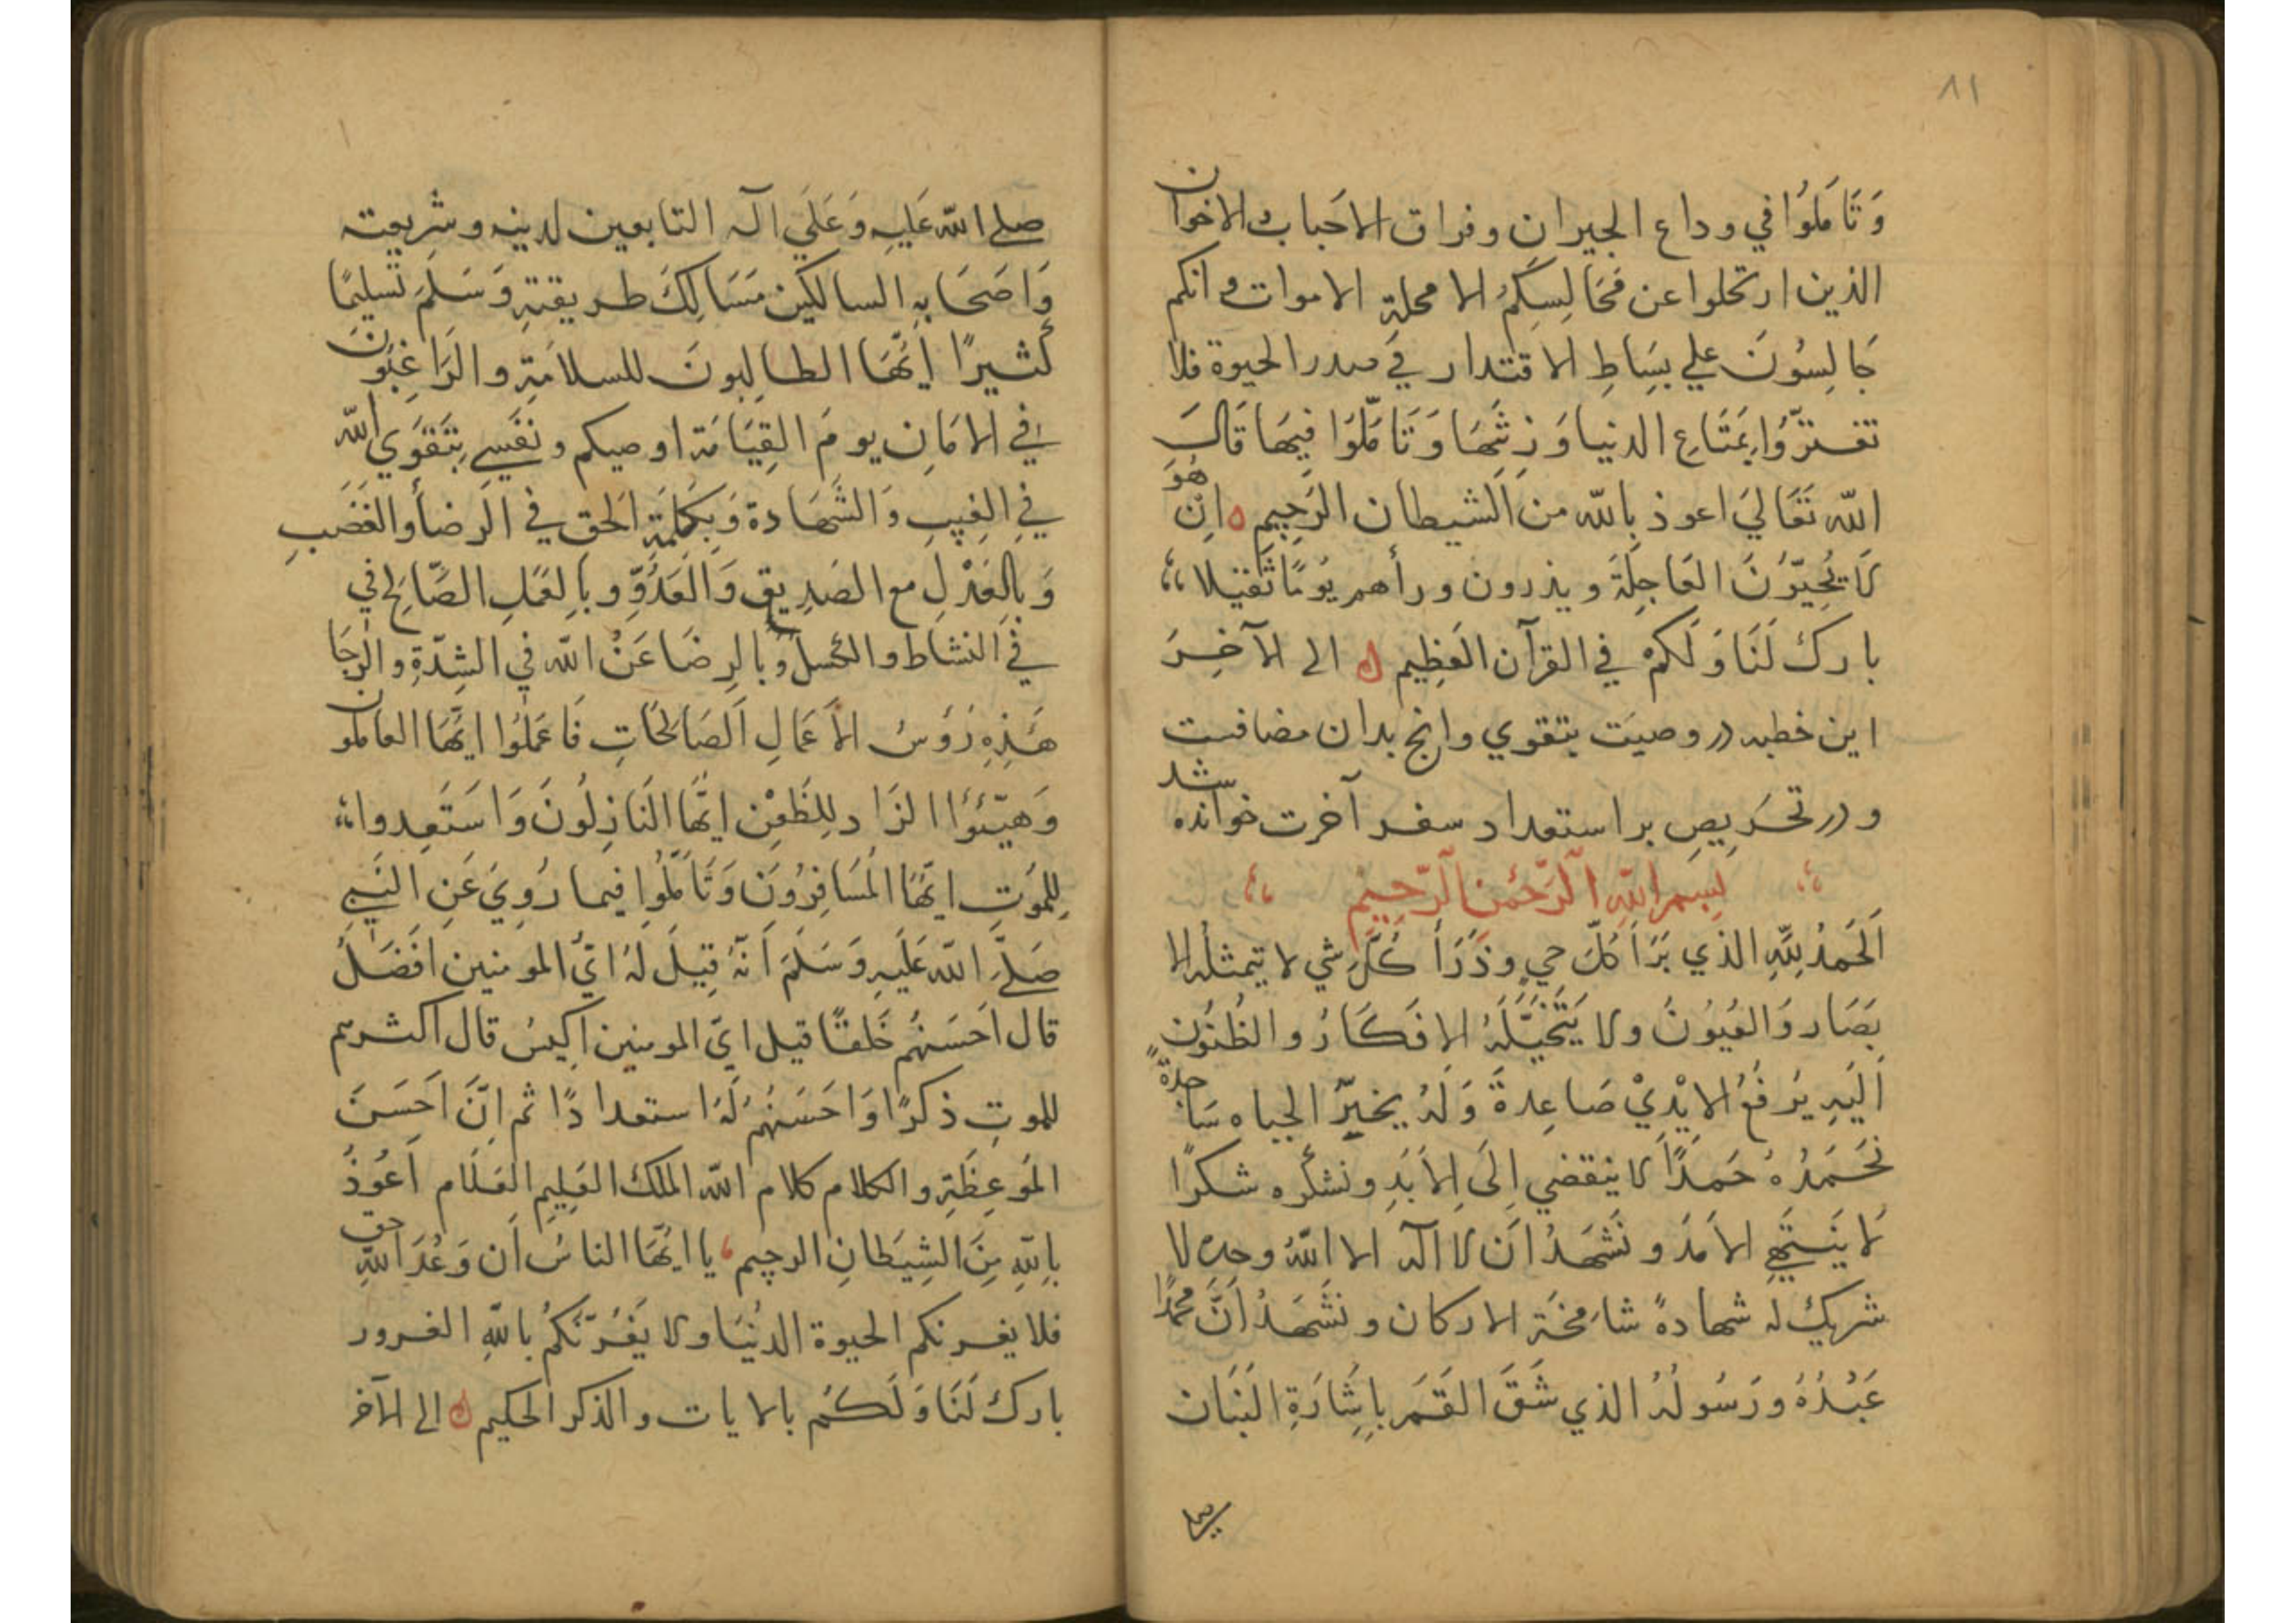 ٨١
وَتَامَلُوُا في وداع الجيرانِ وفراق الاحَباب والاخوان
الذين ارتحلوا عن مَجَالِسِكُم الا محلة الاموات وانكم
جَالِسُونَ علي بِسَاطِ الاقتدار فِي صدر الحيوة فلا
تغترُّوا بِمَتَاعِ الدنيا وَزِينَتِهَا وَتَامَّلُوا فِيهَا قَالَ
الله تَعَاليَ اعوذ بِالله من الشيطان الرَجِيمِ انِ هُوَلَا
لَا يُحِبّوُنَ العَاجِلَةَ ويذرون ورأهم يَومًا ثَقيلا
بارك لَنَا وَلَكُمْ في القرآن العَظِيم الى الآخِرَ
اين خطبه در وصيَت بتقوي وانچ بدان مضافست
و در تحَريصِ بر استعداد سفر آخرت خوانده شد
بِسمِ اللهِ الرَّحمٰنِ الرَّحِيمِ
اَلحَمدُ لِلّهِ الذي بَرَأ كُلَّ حيٍ وذَرَأ كُلَّ شي لا يتمثله الا
بَصَار وَالعُيوُنُ ولا يَتَخَيَّلَهُ الافكَارُ والظُنُون
اَليَهِ يَرفَعُ الايْدِيْ صَاعِدةً وَلَهُ يخِرّ الجباه سَاجدةً
نَحمَدُهُ حَمدًا لا ينقضي اِلَى الاَبَدِ ونشكره شكرًا
لَا يَنتَهِي الاَمَدَ و نَشهَدُ اَن لا اله الا اللهُ وحده لا
شريك له شهادةً شامخَة الاركان و نشَهَدُ اَنَّ محمدًا
عَبْدُهُ ورَسُولُهُ الذي شَقَ القَمَر باِشَارَةِ البَنَان
صلے الله عَليهِ وَعَلَي آله التابعين لدينه وشرِيعته
وَاصَحَابِهِ السالكين مَسَالِكَ طريقتهِ وَسَلَمَ تَسليمًا
كثيرًا ايّهَا الطالِبونَ للسلامَةِ والرَاغِبُونَ
في الامَانِ يومَ القِيَامَة اوصيكم ونفَسِي بِتَقوَي الله
فيِ الغيبِ وَالشَهَادة وَبِكَلمَةِ الحق في الرضأ والغَضَبِ
وَبِالعَدْلِ مع الصَدِيقِ وَالعَدُوِّ وباِلعَمَلِ الصَّالحِ في
في النشاط والكسل وَبالرضَا عَنْ الله في الشِدّةِ والرَجَا
هَذِهِ رُؤسُ الاَعمَالِ الصَالحَاتِ فَاعمَلوُا ايّهَا العاملون
وَهَيّئوُا الزَاد لِلظَعْنِ ايّهَا النَازِلُونَ وَاستَعِدوا
لِلمَوتِ ايّهَا المُسَافِروُنَ وَتَامَّلُوا فيما رُوِيَ عَنِ النَبِي
صَلَّي الله عَلَيهِ وَسَلَمَ اَنّهُ قِيلَ لَهُ ايُّ المومنين افَضَلُ
قال احَسَنهُم خُلقًا قيل ايّ المومنين اكيسُ قال اكثرهم
للموتِ ذكرًا وَاحَسَنهُم لَهُ استعدادًا ثم اِنَّ اَحسَنَ
المَوعِظَةِ والكلام كلام الله الملك العَلِيمِ العَلَام اَعُوذُ
باِللهِ مِنَ الشِيَطانِ الرجيم يا ايّهَا الناسُ اَن وَعْدَ اللهِ حق
فلا يغرنكم الحيوة الدنْيَا ولا يَغُرّنَكُم باللهِ الغرور
بارك لَنَا وَلَكُم بالايات والذكر الحكيم الى الآخر